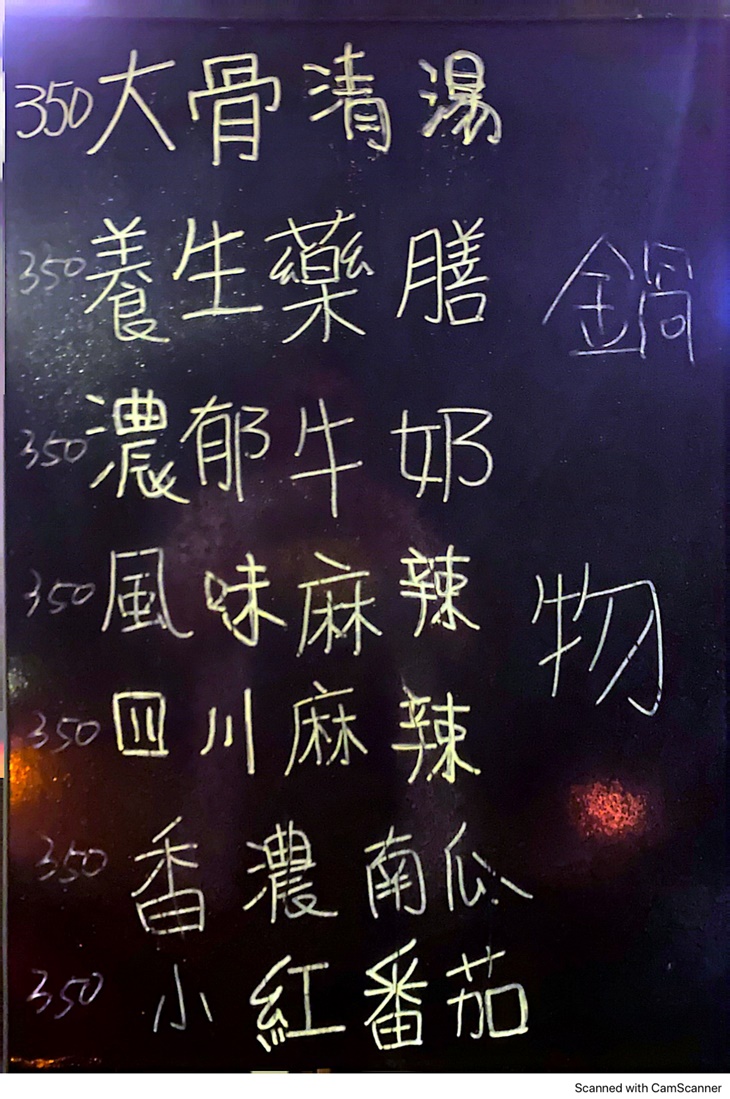 鍋物
350 大骨清湯
350 養生藥膳
350 濃郁牛奶
350 風味麻辣
350 四川麻辣
350 香濃南瓜
350 小紅番茄
Scanned with CamScanner